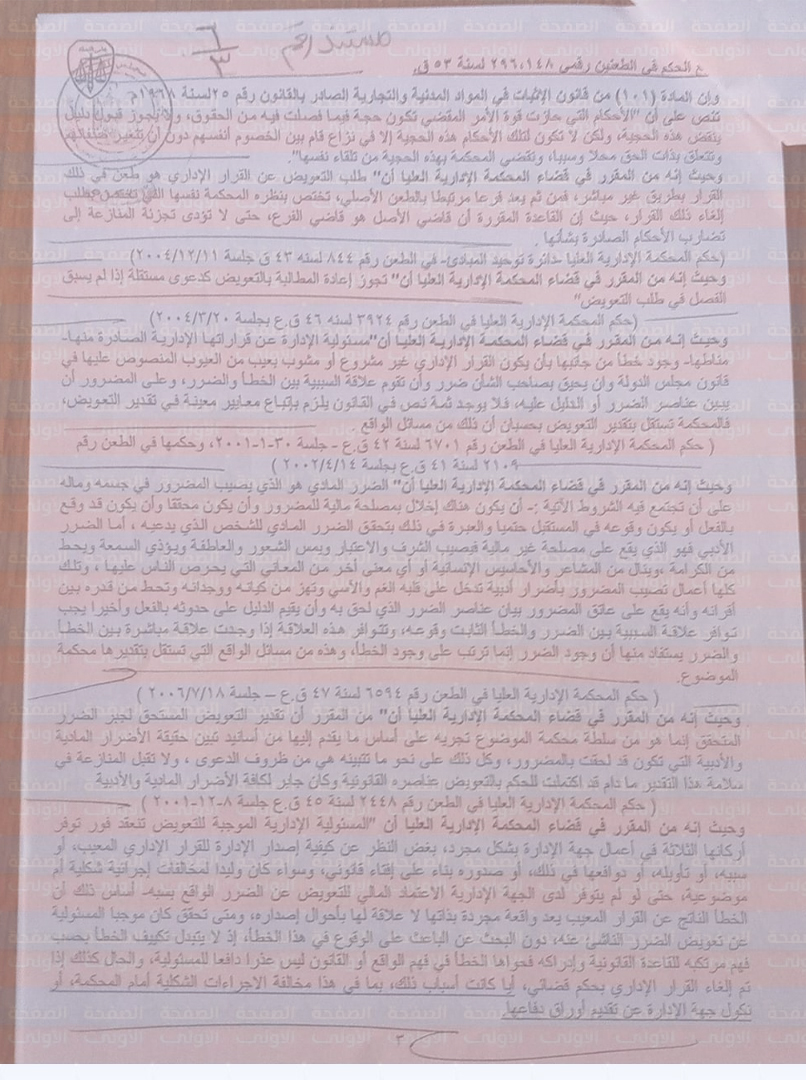 مستند رقم ٦/٣
ع الحكم في الطعنين رقمي ٢٩٦،١٤٨ لسنة ٥٣ ق.
وإن المادة (١٠١) من قانون الإثبات في المواد المدنية والتجارية الصادر بالقانون رقم ٢٥ لسنة ١٩٦٨م
تنص على أن "الأحكام التي حازت قوة الأمر المقضي تكون حجة فيما فصلت فيه من الحقوق، ولا يجوز قبول دليل
ينقض هذه الحجية، ولكن لا تكون لتلك الأحكام هذه الحجية إلا في نزاع قام بين الخصوم أنفسهم دون أن تتغير صفاتهم
وتتعلق بذات الحق محلا وسببا، وتقضي المحكمة بهذه الحجية من تلقاء نفسها".
وحيث إنه من المقرر في قضاء المحكمة الإدارية العليا أن" طلب التعويض عن القرار الإداري هو طعن في ذلك
القرار بطريق غير مباشر، فمن ثم يعد فرعا مرتبطا بالطعن الأصلي، تختص بنظره المحكمة نفسها التي تختص بطلب
إلغاء ذلك القرار، حيث إن القاعدة المقررة أن قاضي الأصل هو قاضي الفرع، حتى لا تؤدى تجزئة المنازعة إلى
تضارب الأحكام الصادرة بشأنها .
(حكم المحكمة الإدارية العليا -دائرة توحيد المبادئ- في الطعن رقم ٨٤٤ لسنه ٤٣ ق جلسة ٢٠٠٤/١٢/١١)
وحيث إنه من المقرر في قضاء المحكمة الإدارية العليا أن" تجوز إعادة المطالبة بالتعويض كدعوى مستقلة إذا لم يسبق
الفصل في طلب التعويض"
(حكم المحكمة الإدارية العليا في الطعن رقم ٣٩٢٤ لسنه ٤٦ ق.ع بجلسة ٢٠٠٤/٣/٢٠)
وحيث إنه من المقرر في قضاء المحكمة الإدارية العليا أن"مسئولية الإدارة عن قراراتها الإدارية الصادرة منها-
مناطها- وجود خطأ من جانبها بأن يكون القرار الإداري غير مشروع أو مشوب بعيب من العيوب المنصوص عليها في
قانون مجلس الدولة وان يحيق بصاحب الشأن ضرر وأن تقوم علاقة السببية بين الخطأ والضرر، وعلى المضرور أن
يبين عناصر الضرر أو الدليل عليه، فلا يوجد ثمة نص في القانون يلزم بإتباع معايير معينة في تقدير التعويض،
فالمحكمة تستقل بتقدير التعويض بحسبان أن ذلك من مسائل الواقع .
( حكم المحكمة الإدارية العليا في الطعن رقم ٦٧٠١ لسنة ٤٢ ق.ع - جلسة ٣٠-١-٢٠٠١، وحكمها في الطعن رقم
٢١٠٩ لسنة ٤١ ق.ع بجلسة ٢٠٠٢/٤/١٤ )
وحيث إنه من المقرر في قضاء المحكمة الإدارية العليا أن" الضرر المادي هو الذي يصيب المضرور في جسمه وماله
على أن تجتمع فيه الشروط الآتية :- أن يكون هناك إخلال بمصلحة مالية للمضرور وأن يكون محققا وأن يكون قد وقع
بالفعل أو يكون وقوعه في المستقبل حتميا والعبرة في ذلك بتحقق الضرر المادي للشخص الذي يدعيه ، أما الضرر
الأدبي فهو الذي يقع على مصلحة غير مالية فيصيب الشرف والاعتبار ويمس الشعور والعاطفة ويؤذي السمعة ويحط
من الكرامة ،وينال من المشاعر والأحاسيس الإنسانية أو أي معنى أخر من المعاني التي يحرص الناس عليها ، وتلك
كلها أعمال تصيب المضرور بأضرار أدبية تدخل على قلبه الغم والآسي وتهز من كيانه ووجدانه وتحط من قدره بين
أقرانه وأنه يقع على عاتق المضرور بيان عناصر الضرر الذي لحق به وأن يقيم الدليل على حدوثه بالفعل وأخيرا يجب
توافر علاقة السببية بين الضرر والخطأ الثابت وقوعه، وتتوافر هذه العلاقة إذا وجدت علاقة مباشرة بين الخطأ
والضرر يستفاد منها أن وجود الضرر إنما ترتب على وجود الخطأ، وهذه من مسائل الواقع التي تستقل بتقديرها محكمة
الموضوع.
( حكم المحكمة الإدارية العليا في الطعن رقم ٦٥٩٤ لسنة ٤٧ ق.ع – جلسة ٢٠٠٦/٧/١٨ )
وحيث إنه من المقرر في قضاء المحكمة الإدارية العليا أن" من المقرر أن تقدير التعويض المستحق لجبر الضرر
المتحقق إنما هو من سلطة محكمة الموضوع تجريه على أساس ما يقدم إليها من أسانيد تبين حقيقة الأضرار المادية
والأدبية التي تكون قد لحقت بالمضرور، وكل ذلك على نحو ما تتبينه هي من ظروف الدعوى ، ولا تقبل المنازعة في
سلامة هذا التقدير ما دام قد اكتملت للحكم بالتعويض عناصره القانونية وكان جابر لكافة الأضرار المادية والأدبية
( حكم المحكمة الإدارية العليا في الطعن رقم ٢٤٤٨ لسنة ٤٥ ق.ع جلسة ٨-١٢-٢٠٠١ )
وحيث إنه من المقرر في قضاء المحكمة الإدارية العليا أن "المسئولية الإدارية الموجبة للتعويض تنعقد فور توفر
أركانها الثلاثة في أعمال جهة الإدارة بشكل مجرد، بغض النظر عن كيفية إصدار الإدارة للقرار الإداري المعيب، أو
سببه، أو تأويله، أو دوافعها في ذلك، أو صدوره بناء على إفتاء قانوني، وسواء كان وليدا لمخالفات إجرائية شكلية أم
موضوعية، حتى لو لم يتوفر لدى الجهة الإدارية الاعتماد المالي للتعويض عن الضرر الواقع بسبه- أساس ذلك أن
الخطأ الناتج عن القرار المعيب يعد واقعة مجردة بذاتها لا علاقة لها بأحوال إصداره، ومتى تحقق كان موجبا المسئولية
عن تعويض الضرر الناشئ عنه، دون البحث عن الباعث على الوقوع في هذا الخطأ، إذ لا يتبدل تكييف الخطأ بحسب
فهم مرتكبه للقاعدة القانونية وإدراكه فحواها الخطأ في فهم الواقع أو القانون ليس عذرا دافعا للمسئولية، والحال كذلك إذا
تم إلغاء القرار الإداري بحكم قضائي، أيا كانت أسباب ذلك، بما في هذا مخالفة الاجراءات الشكلية أمام المحكمة، أو
نكول جهة الإدارة عن تقديم أوراق دفاعها.
٣